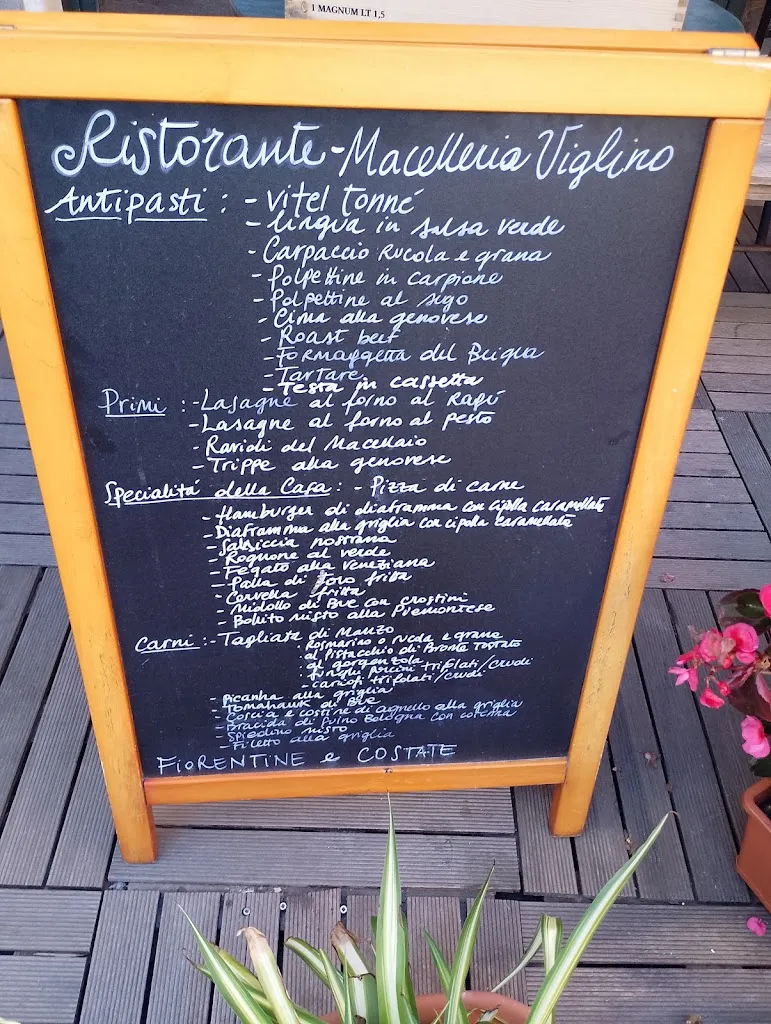 1 MAGNUM LT 1,5
Ristorante - Macelleria Viglino
Antipasti : - Vitel tonné
- Lingua in salsa verde
- Carpaccio Rucola e grana
- Polpettine in carpione
- Polpettine al sugo
- Cima alla genovese
- Roast beef
- Formaggetta del Beigua
- Tartare
- Testa in cassetta
Primi : - Lasagne al forno al Ragù
- Lasagne al forno al pesto
- Ravioli del Macellaio
- Trippe alla genovese
Specialitá della Casa : - Pizza di carne
- Hamburger di diaframma con cipolla caramellata
- Diaframma alla griglia con cipolla caramellata
- Salsiccia nostrana
- Rognone al verde
- Fegato alla veneziana
- Palla di Toro fritta
- Cervella fritta
- Midollo di Bue con crostini
- Bollito misto alla Piemontese
Carni : - Tagliata di Manzo
. Rosmarino o rucola e grana
. al Pistacchio di Bronte Tostato
. al gorgonzola
. funghi porcini trifolati/crudi
. carciofi trifolati/crudi
- Picanha alla griglia
- Tomahawk di Bue
- Coscia e costine di agnello alla griglia
- Braciola di Suino Bologna con cotenna
- Spiedino misto
- Filetto alla griglia
FIORENTINE e COSTATE